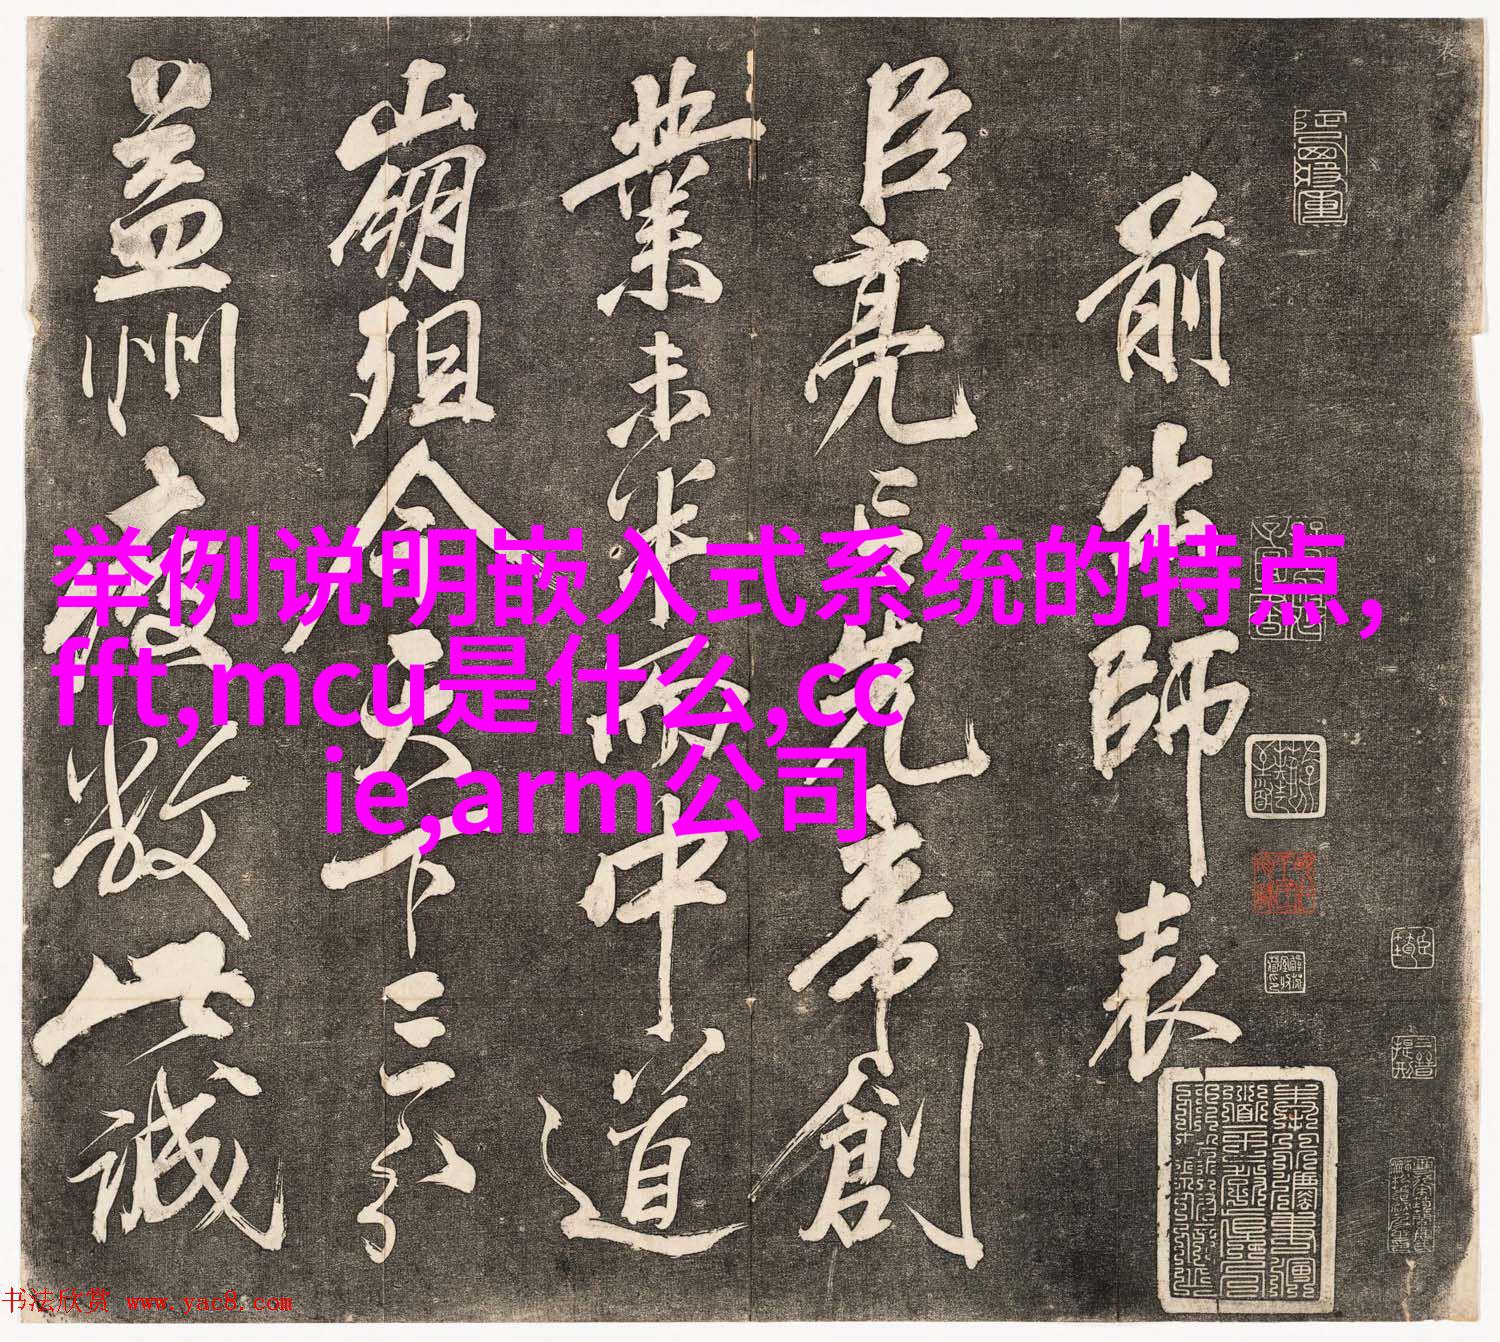 举例说明嵌入式系统的特点,
fft,mcu是什么,cc
ie,arm公司
前出師表
臣亮言先帝創
業未半而中道
崩殂今天下三分
益州疲敝此誠
书法欣赏 www.yac8.com